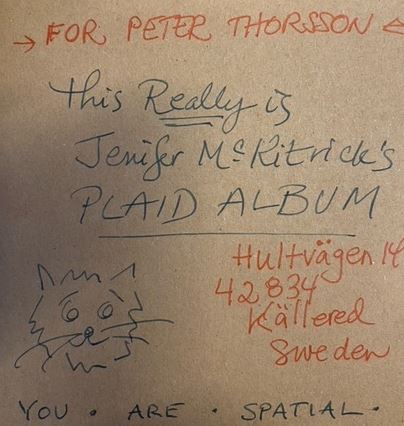 → FOR PETER THORSSON ←
this Really is
Jenifer McKitrick's
PLAID ALBUM
Hultvägen 14
42834
Källered
Sweden
YOU · ARE · SPATIAL ·